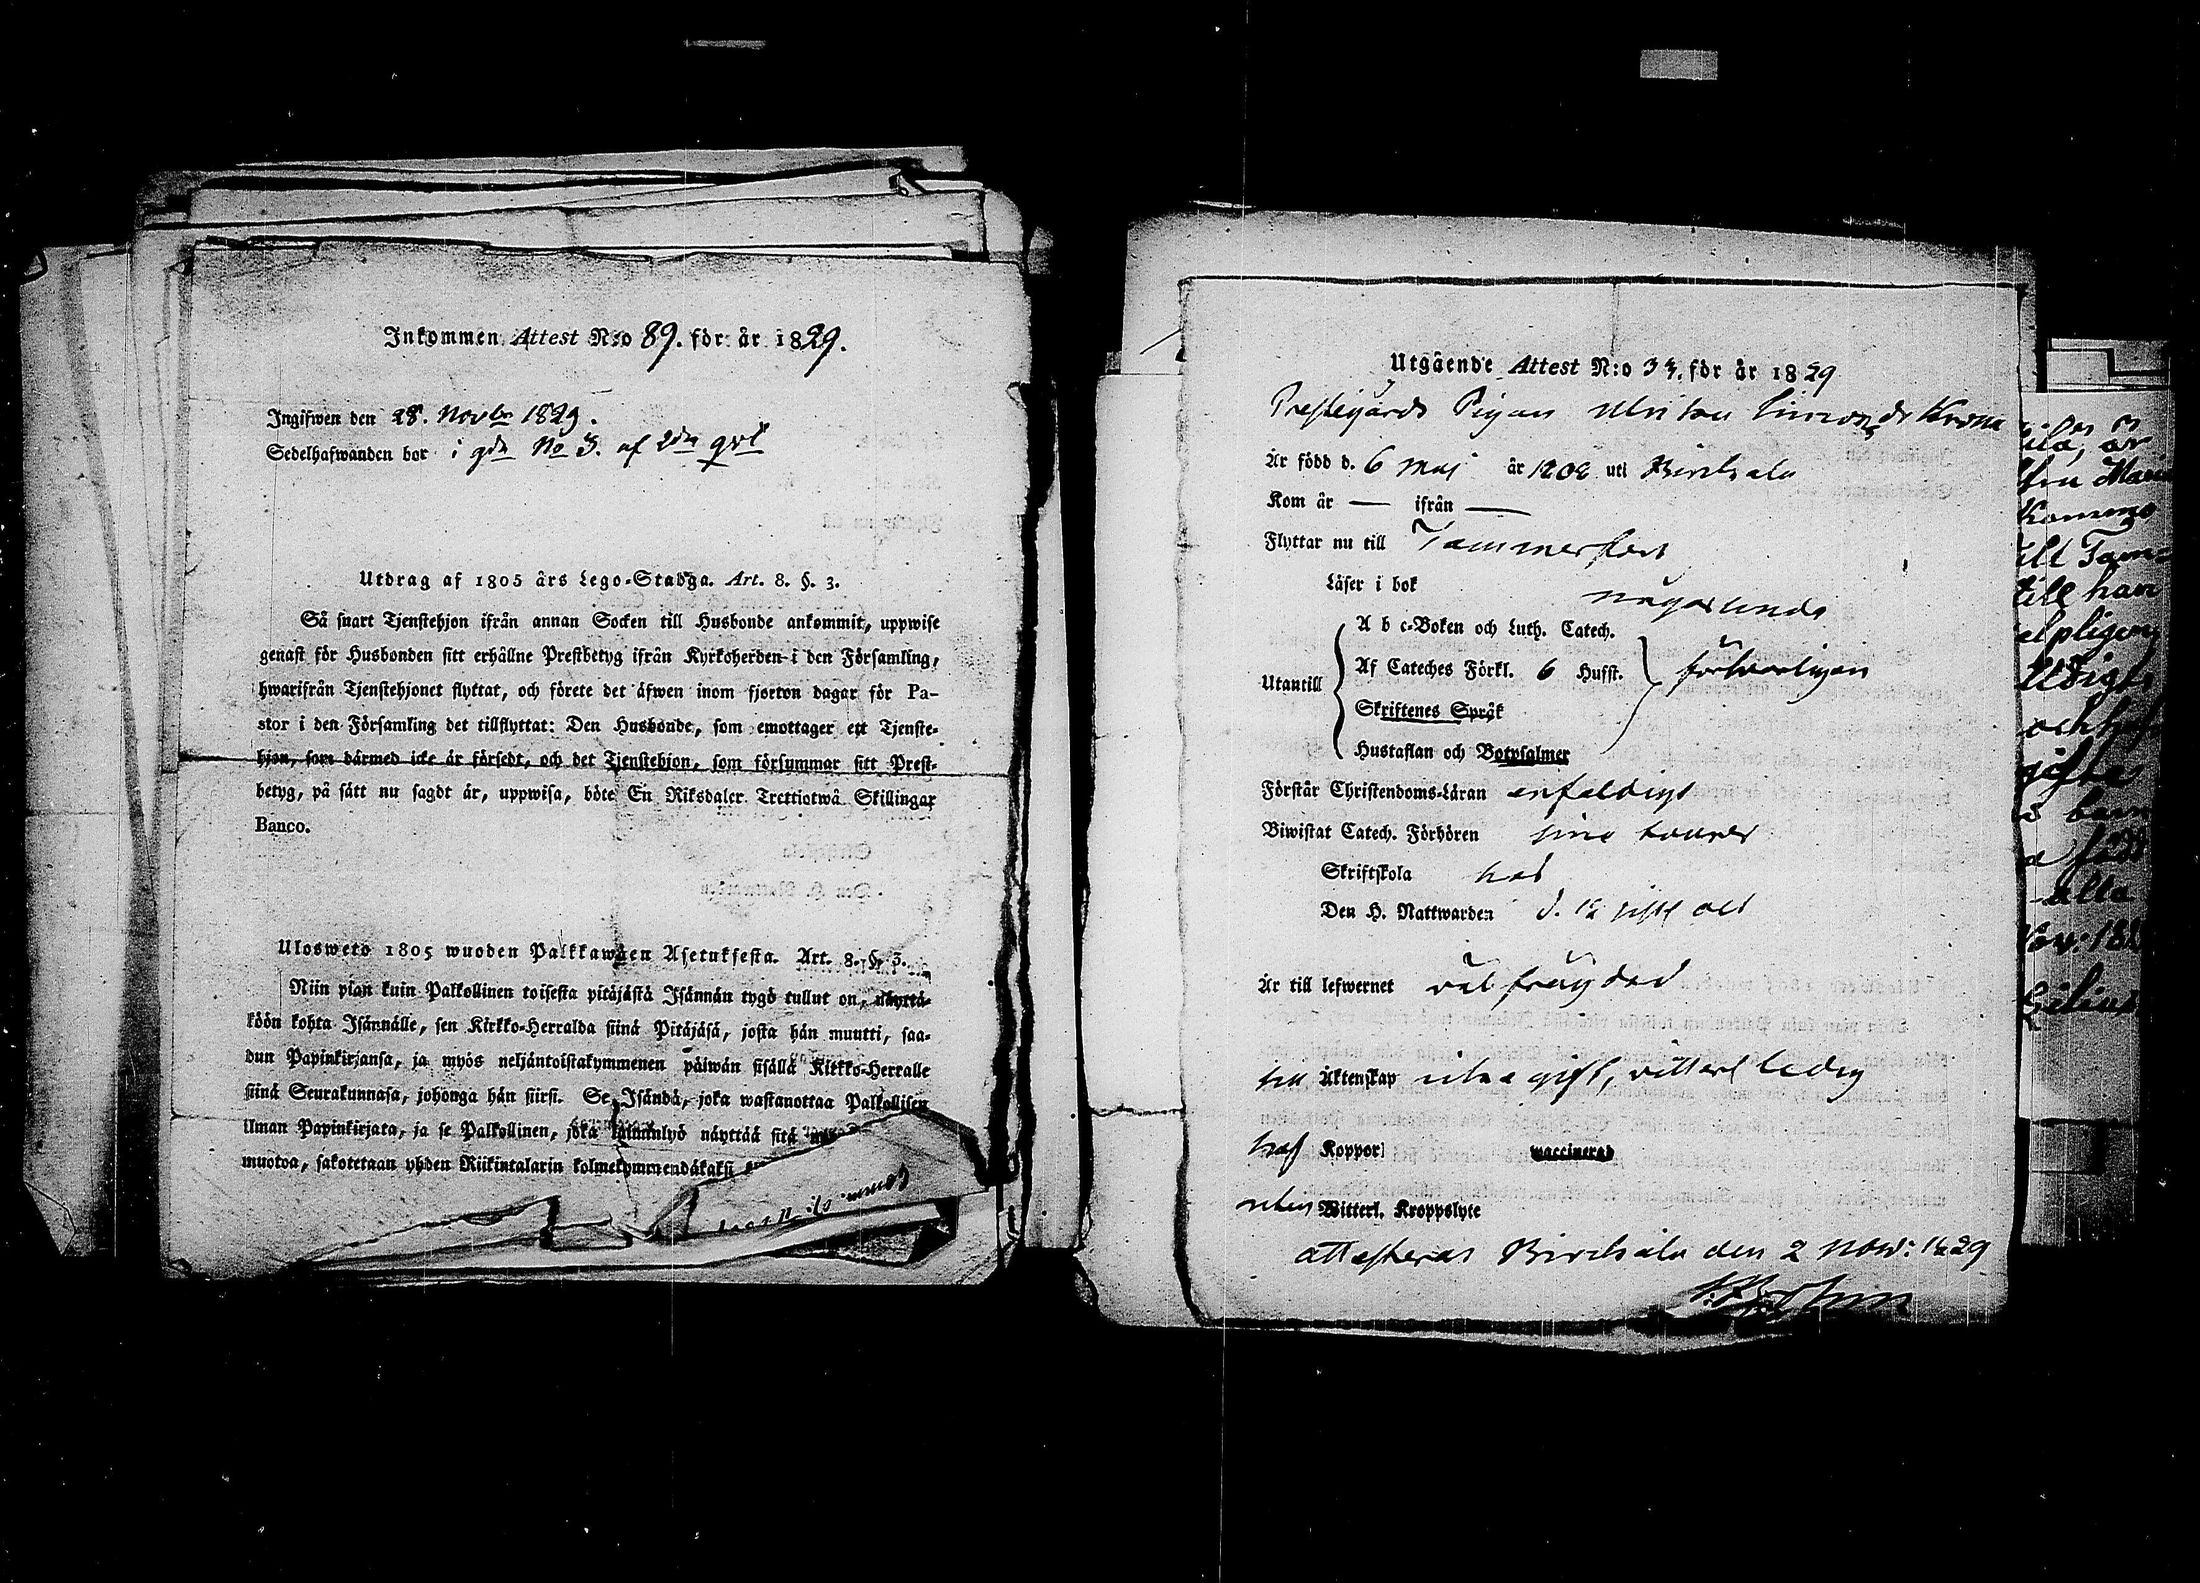 Inkommen Attest N:o 89. för år 1829.
Ingifwen den 28. Novbr 1829.
Sedelhafwanden bor i gdn No 3. af 2dra qvt
Utdrag af 1805 års Lego-Stadga. Art. 8. §. 3.
Så snart Tjenstehjon ifrån annan Socken till Husbonde ankommit, uppwise
genast för Husbonden sitt erhållne Prestbetyg ifrån Kyrkoherden i den Församling,
hwarifrån Tjenstehjonet flyttat, och förete det äfwen inom fjorton dagar för Pa-
stor i den Församling det tillflyttat: Den Husbonde, som emottager ett Tjenste-
hjon, som därmed icke är försedt, och det Tjenstehjon, som försummar sitt Prest-
betyg, på sätt nu sagdt är, uppwisa, böte En Riksdaler Trettiotwå Skillingar
Banco.
Ulosweto 1805 wuoden Palkkawäen Asetuksesta. Art. 8. §. 3.
Niin pian kuin Palkollinen toisesta pitäjästä Isännän tygö tullut on, näyttä-
köön kohta Isännälle, sen Kirkko-Herralda siinä Pitäjäsä, josta hän muutti, saa-
dun Papinkirjansa, ja myös neljäntoistakymmenen päiwän sisällä Kirkko-Herralle
siinä Seurakunnasa, johonga hän siirsi. Se Isändä, joka wastanottaa Palkollisen
ilman Papinkirjata, ja se Palkollinen, joka laiminlyö näyttää sitä
muotoa, sakotetaan yhden Riikintalarin kolmekymmendäkaksi
Utgående Attest N:o 33. för år 1829
Prestegårds Pigan Ulrika Simonsdr Krona
Är född d. 6 Maj år 1808 uti Birckala
Kom år — ifrån —
Flyttar nu till Tammerfors
Läser i bok någorlunda
A b c-Boken och Luth. Catech.
Utantill Af Cateches Förkl. 6 Hufst. försvarligen
Skriftenes Språk
Hustaflan och Botpsalmer
Förstår Christendoms-Läran enfaldigt
Biwistat Catech. Förhören sine tourer
Skriftskola had
Den H. Nattwarden d. 12 sistl oct
Är till lefwernet väl frägdad
till Äktenskap icke gift, vitterl ledig
haft Koppor waccinerad
utan Witterl. Kroppslyte
attesteras Birckala den 2 Nov: 1829
ila, är
Mari
Komme
till Tam-
till han
och
gifter
född
alla
Nov: 18